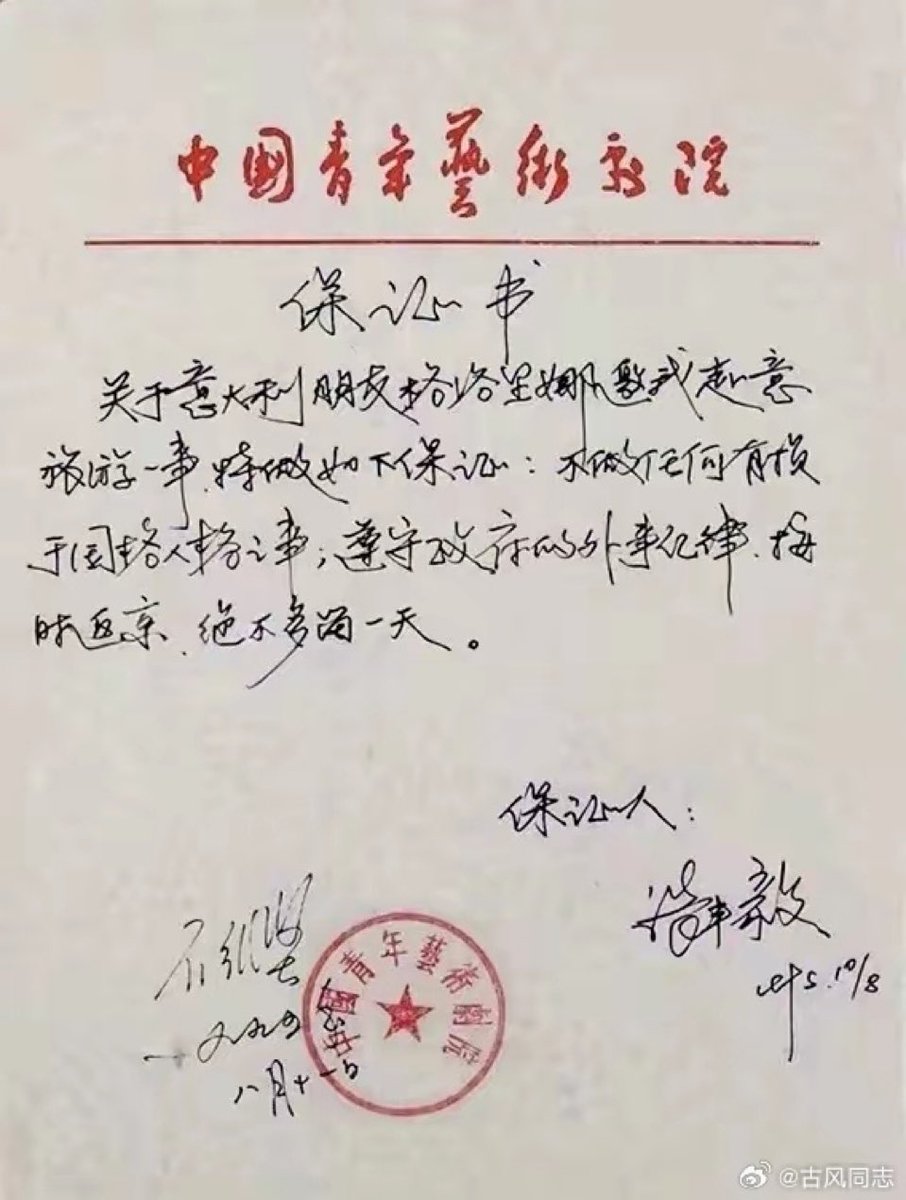 中国青年艺术剧院
保证书
关于意大利朋友格洛里娜邀我赴意
旅游一事,特做如下保证:不做任何有损
于国格人格之事;遵守政府的外事纪律,按
时返京,绝不多留一天。
保证人:
毅
95.10/8
石维坚
一九九五
八月十一日
中國青年藝術劇院
@古风同志